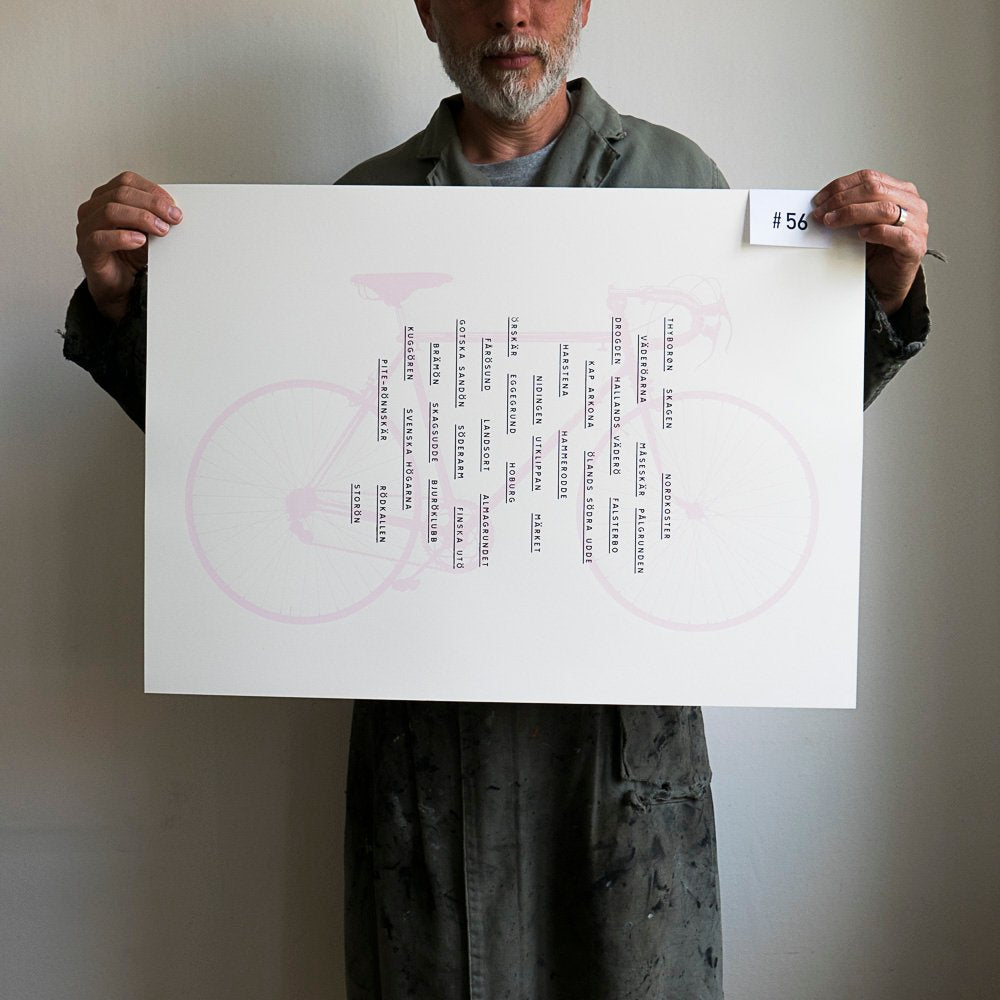 #56
THYBORØN SKAGEN NORDKOSTER
VÄDERÖARNA MÅSESKÄR PÅLGRUNDEN
DROGDEN HALLANDS VÄDERÖ FALSTERBO
KAP ARKONA ÖLANDS SÖDRA UDDE
HARSTENA HAMMERODDE
NIDINGEN UTKLIPPAN MÄRKET
ÖRSKÄR EGGEGRUND HOBURG
FÅRÖSUND LANDSORT ALMAGRUNDET
GOTSKA SANDÖN SÖDERARM FINSKA UTÖ
BRÄMÖN SKAGSUDDE BJURÖKLUBB
KUGGÖREN SVENSKA HÖGARNA
PITE-RÖNNSKÄR RÖDKALLEN
STORÖN